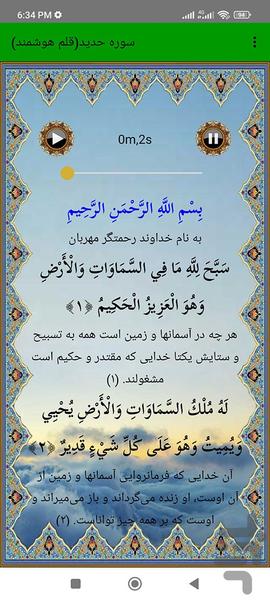 6:34 PM
سوره حدید(قلم هوشمند)
0m,2s
بِسْمِ اللَّهِ الرَّحْمَنِ الرَّحِيمِ
به نام خداوند رحمتگر مهربان
سَبَّحَ لِلَّهِ مَا فِي السَّمَاوَاتِ وَالْأَرْضِ
وَهُوَ الْعَزِيزُ الْحَكِيمُ ﴿۱﴾
هر چه در آسمانها و زمین است همه به تسبیح
و ستایش یکتا خدایی که مقتدر و حکیم است
مشغولند. (۱)
لَهُ مُلْكُ السَّمَاوَاتِ وَالْأَرْضِ يُحْيِي
وَيُمِيتُ وَهُوَ عَلَى كُلِّ شَيْءٍ قَدِيرٌ ﴿۲﴾
آن خدایی که فرمانروایی آسمانها و زمین از
آن اوست، او زنده می‌گرداند و باز می‌میراند و
اوست که بر همه چیز تواناست. (۲)